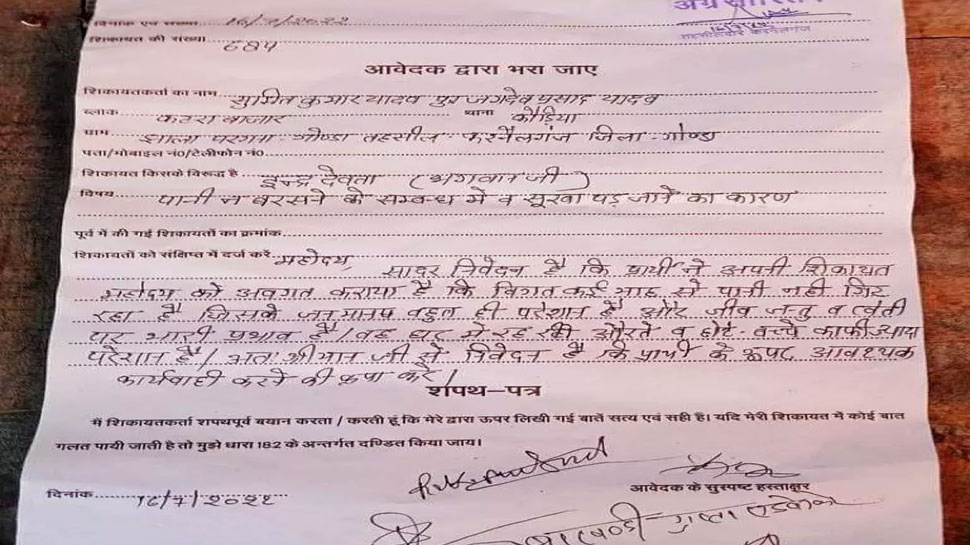 अग्रसारित
दिनांक एवं संख्या 16/7/2022
तहसीलदार करनैलगंज
शिकायत की संख्या 684
आवेदक द्वारा भरा जाए
शिकायतकर्ता का नाम सुमित कुमार यादव पुत्र जगदेव प्रसाद यादव
ब्लाक कटरा बाजार थाना कौड़िया
ग्राम झाला परगना गोण्डा तहसील करनैलगंज जिला-गोण्डा
पता/मोबाइल नं0/टेलीफोन नं0
शिकायत किसके विरूद्ध है इन्द्र देवता (भगवान जी)
विषय पानी न बरसने के सम्बन्ध में व सूखा पड़ जाने का कारण
पूर्व में की गई शिकायतों का क्रमांक
शिकायतों को संक्षिप्त में दर्ज करें महोदय,
सादर निवेदन है कि प्रार्थी ने अपनी शिकायत
महोदय को अवगत कराया है कि विगत कई माह से पानी नही गिर
रहा है जिससे जनमानष बहुत ही परेशान है और जीव जन्तु व खेती
पर भारी प्रभाव है/ घर में रह रही औरते व छोटे बच्चे काफी ज्यादा
परेशान है/ अतः श्रीमान जी से निवेदन है कि प्रार्थी के ऊपर आवश्यक
कार्यवाही करने की कृपा करे/
शपथ-पत्र
मैं शिकायतकर्ता शपथपूर्व बयान करता / करती हूं कि मेरे द्वारा ऊपर लिखी गई बातें सत्य एवं सही है। यदि मेरी शिकायत में कोई बात
गलत पायी जाती है तो मुझे धारा 182 के अन्तर्गत दण्डित किया जाय।
आवेदक के सुस्पष्ट हस्ताक्षर
दिनांक 16/7/2022
गुप्ता एडवोकेट